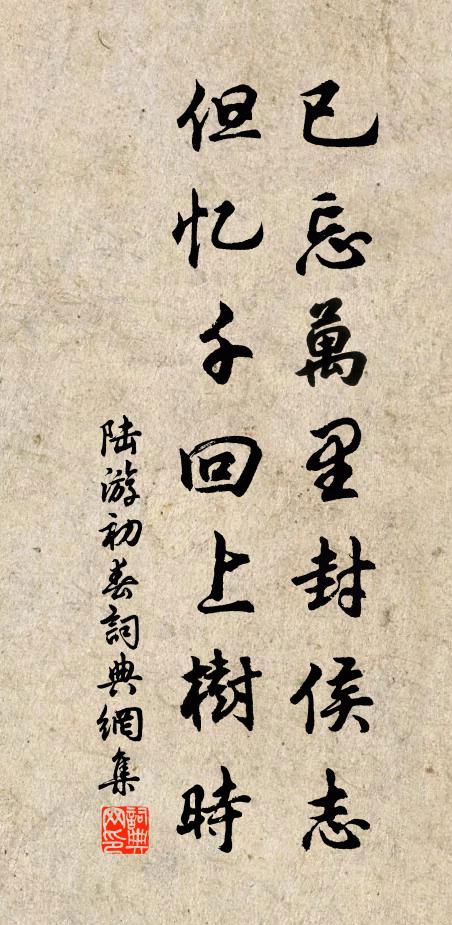 已忘萬里封侯志
但忆千回上樹時
陆游初春詞典網集
詞典网印